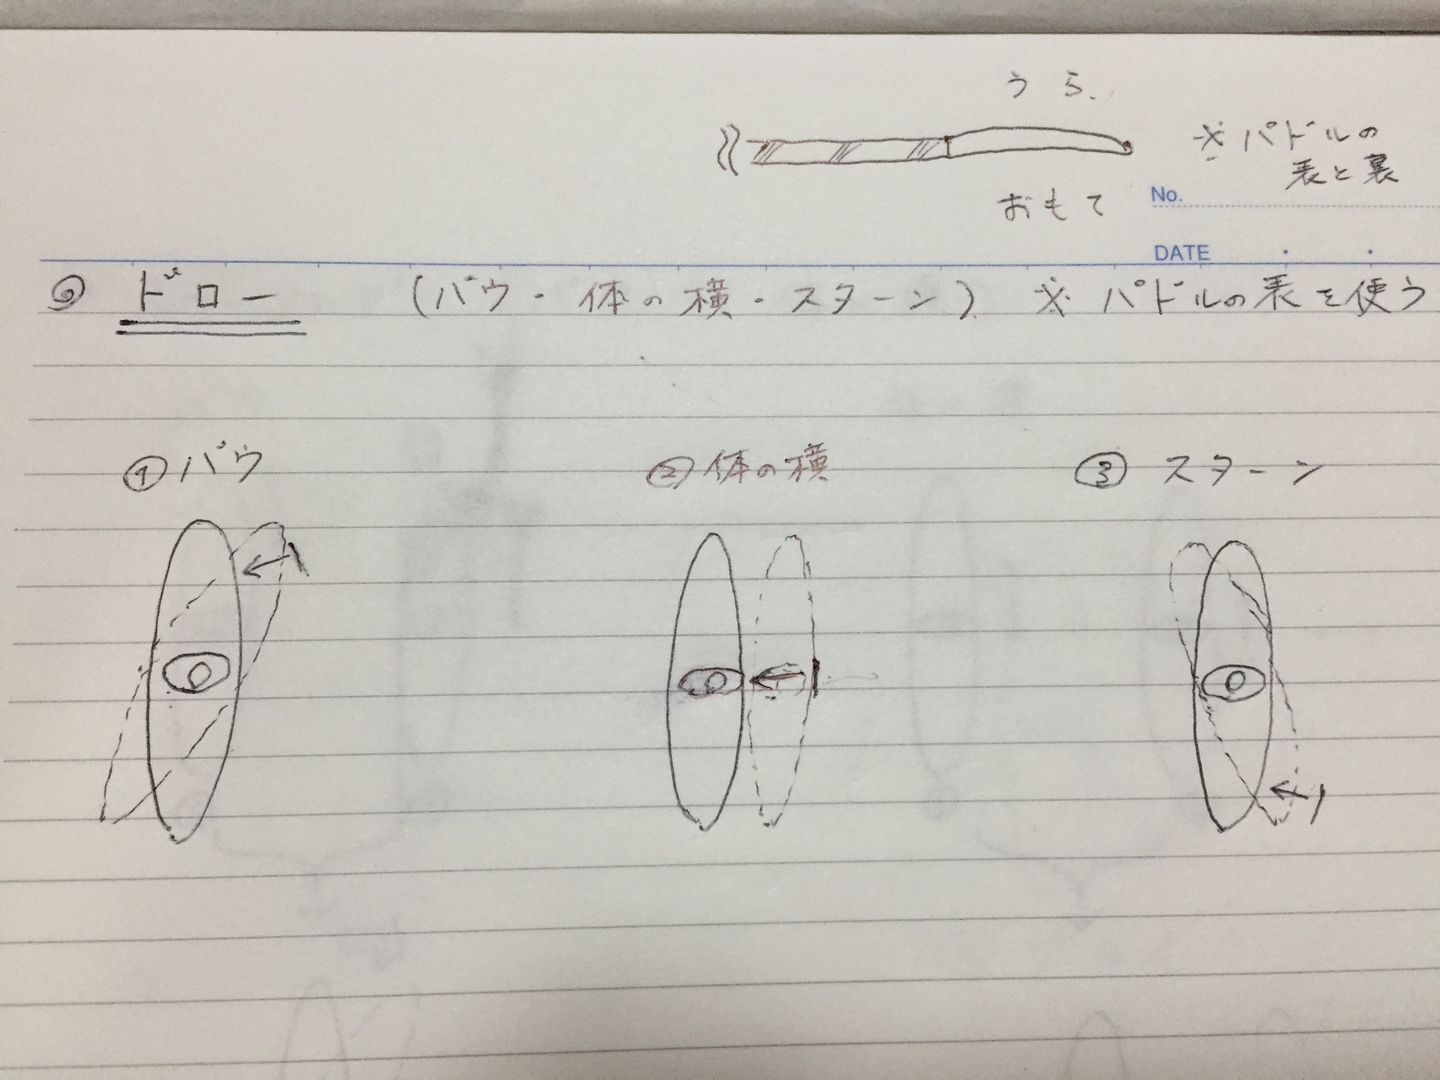 うら
※パドルの
表と裏
おもて
No.
DATE
◎ ドロー (バウ・体の横・スターン) ※パドルの表を使う
①バウ
②体の横
③スターン